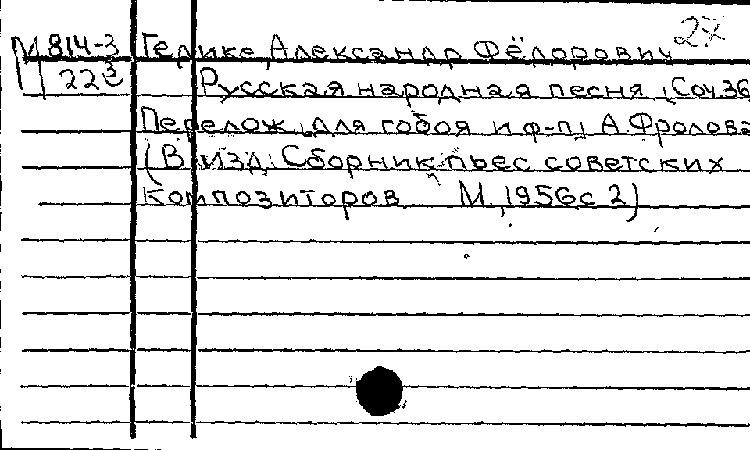 27
М 814-3 Гедике, Александр Фёдорович
223 Русская народная песня, Соч. 36
Перелож. для гобоя и ф-п. А. Фролова
(В изд: Сборник пьес советских
композиторов М., 1956 с 2)